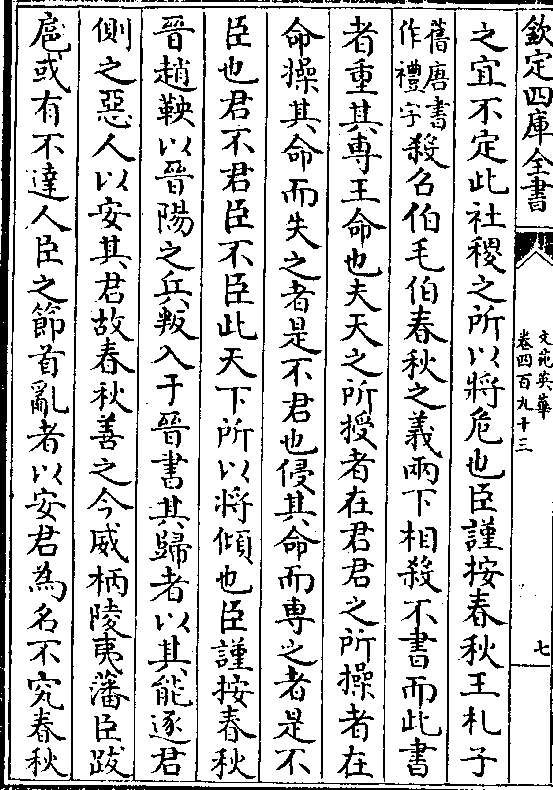 欽定四庫全書
文苑英華
卷四百九十三
七
之宜不定此社稷之所以將危也臣謹按春秋王札子
舊唐書
作禮字
殺召伯毛伯春秋之義兩下相殺不書而此書
者重其專王命也夫天之所授者在君君之所操者在
命操其命而失之者是不君也侵其命而專之者是不
臣也君不君臣不臣此天下所以將傾也臣謹按春秋
晉趙鞅以晉陽之兵叛入于晉書其歸者以其能逐君
側之惡人以安其君故春秋善之今威柄陵夷藩臣跋
扈或有不達人臣之節首亂者以安君為名不究春秋